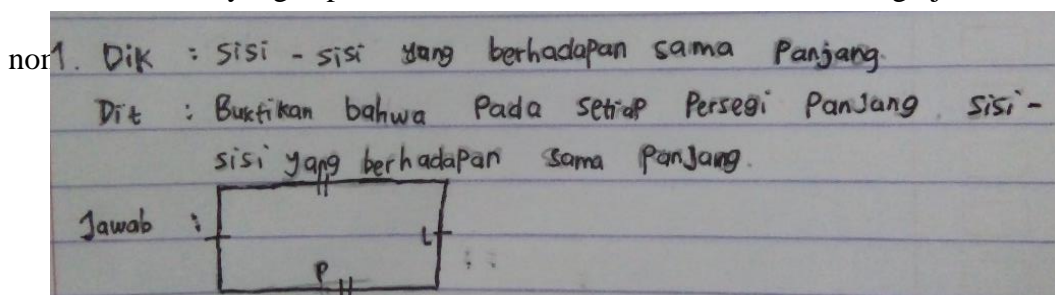 nor
1. Dik : Sisi - sisi yang berhadapan sama Panjang.
Dit : Buktikan bahwa Pada setiap Persegi Panjang sisi-
sisi yang berhadapan sama Panjang.
Jawab :
L
P